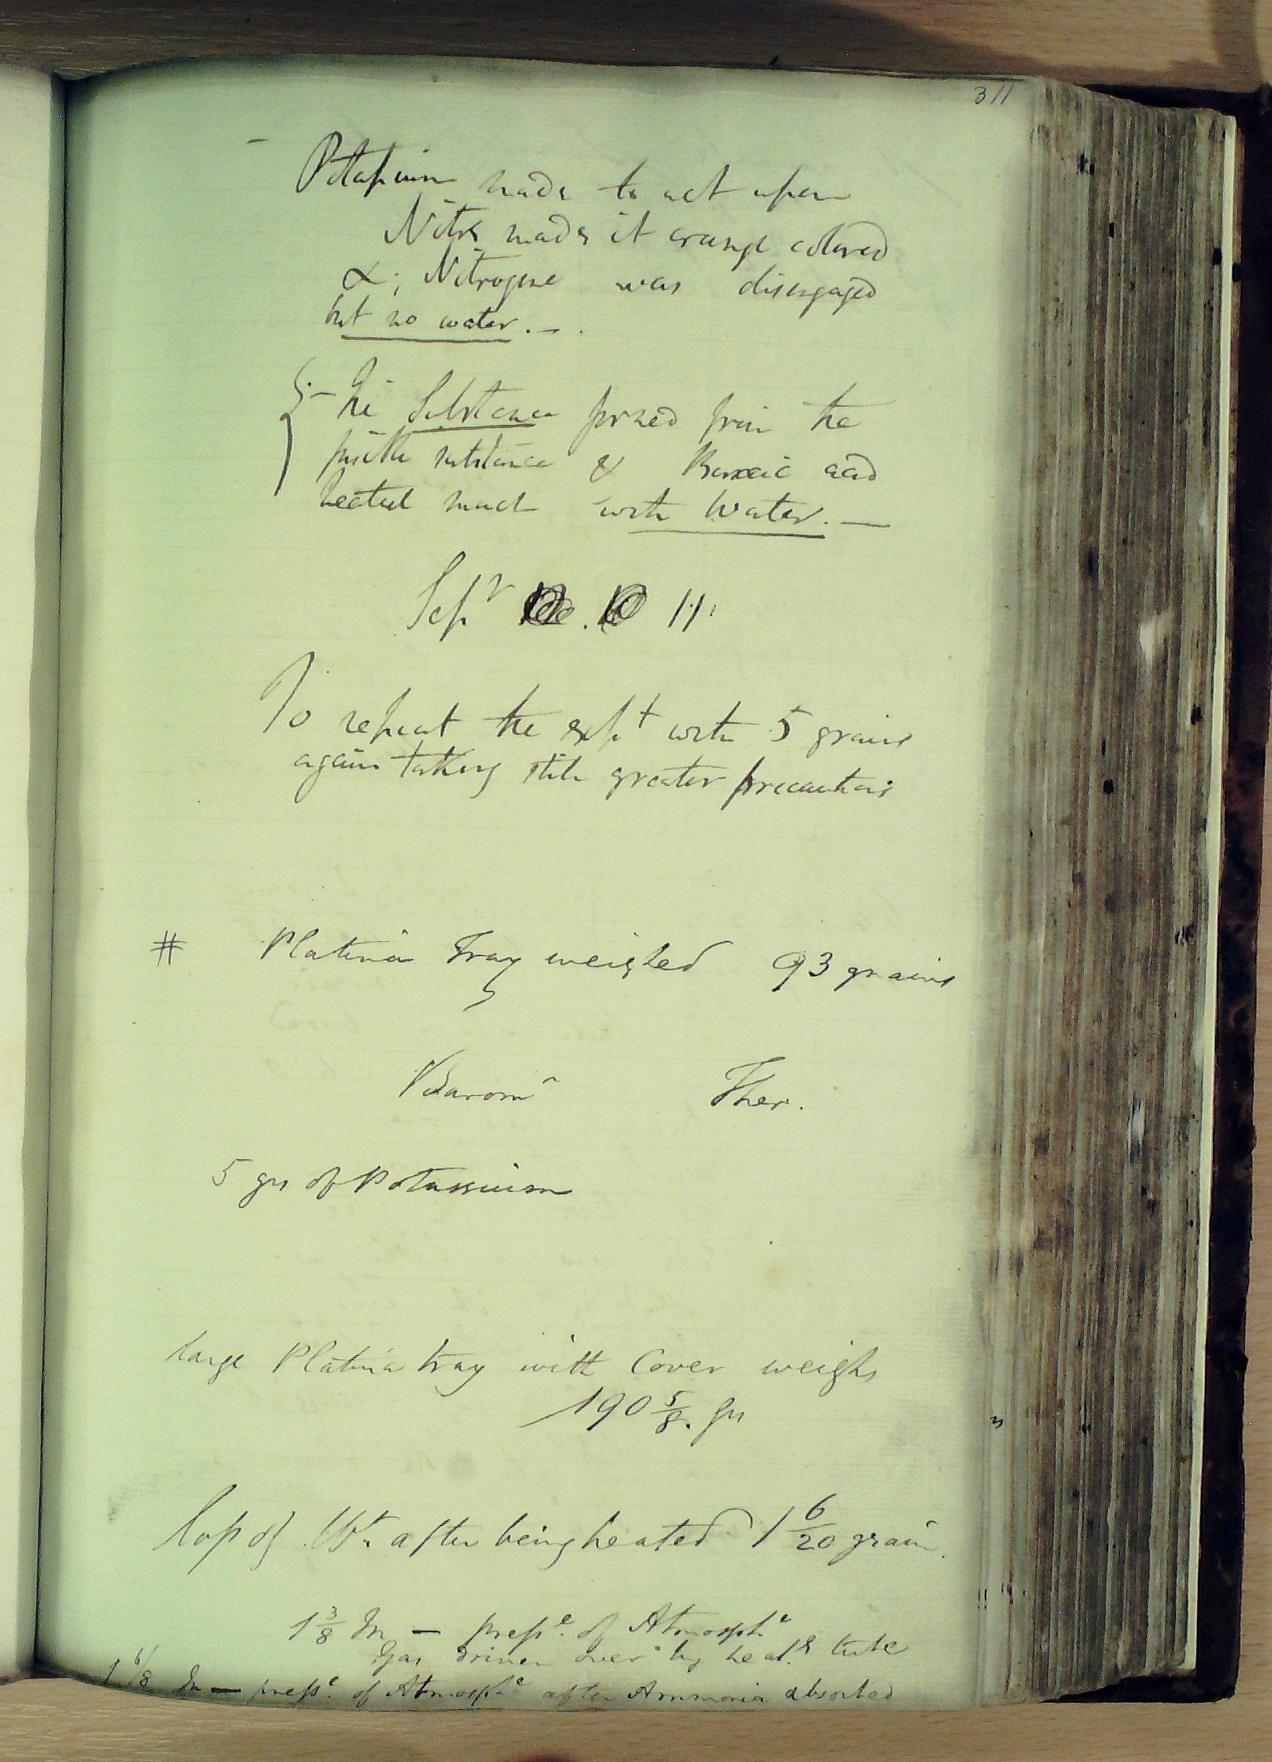 311
Potassium made to act upon
Nitre made it orange colored
&; Nitrogene was disengaged
but no water. —.
— The Substance formed from the
fusible substance & Boracic acid
heated much with Water. —
Sepr 11
To repeat the expt with 5 grains
again taking still greater precautions
# Platina Tray weighed 93 grains
Baromr Ther.
5 grs of Potassium
large Platina tray with Cover weighs
190 5/8. grs
loss of Wt. after being heated 1 6/20 grain.
1 3/8 In — presse. of Atmosphe
gas driven over by heatg tube
1 6/8 In — presse. of Atmosphe after Ammonia absorbed